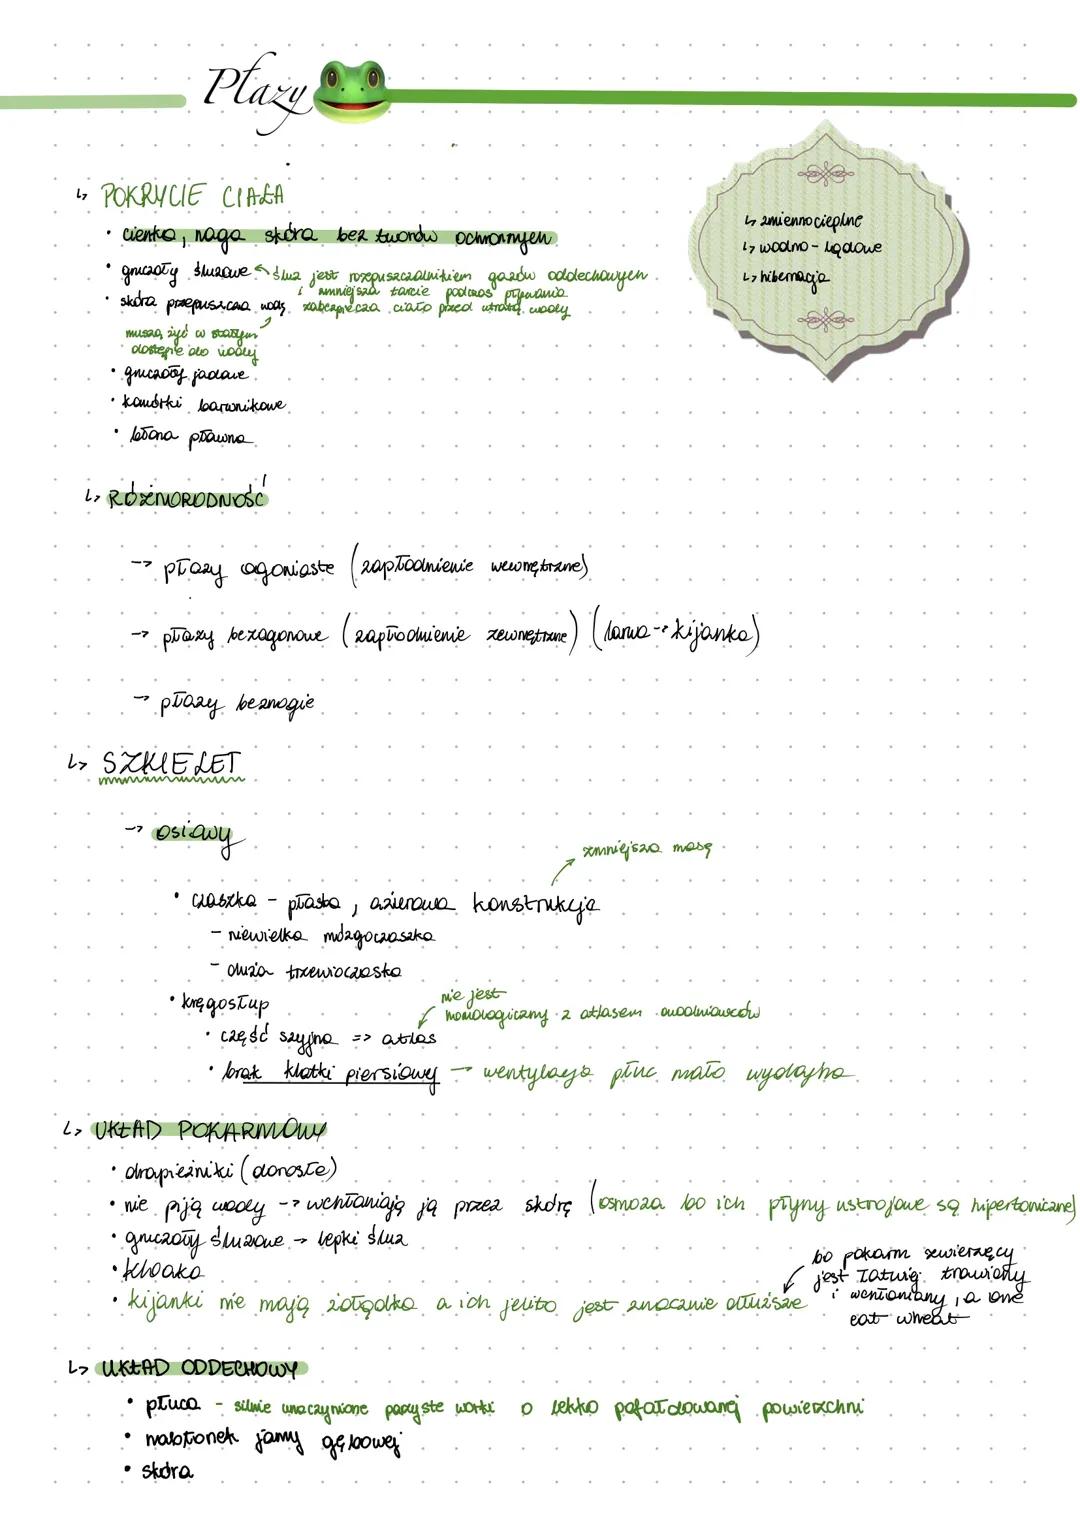 Płazy
↳ POKRYCIE CIAŁA
• cienka, naga skóra bez tworów ochronnych
• gruczoły śluzowe ← śluz jest rozpuszczalnikiem gazów oddechowych
i zmniejsza tarcie podczas pływania
• skóra przepuszcza wodę zabezpiecza ciało przed utratą wody
muszą żyć w stałym
dostępie do wody
• gruczoły jadowe
• komórki barwnikowe
• błona pławna
↳ zmiennocieplne
↳ wodno - lądowe
↳ hibernacja
↳ RÓŻNORODNOŚĆ
→ płazy ogoniaste (zapłodnienie wewnętrzne)
→ płazy bezogonowe (zapłodnienie zewnętrzne) (larwa → kijanka)
→ płazy beznogie
↳ SZKIELET
→ osiowy
zmniejsza masę
• czaszka - płaska, ażurowa konstrukcja
- niewielka mózgoczaszka
- duża trzewioczaszka
• kręgosłup
nie jest
homologiczny z atlasem owodniowców
• część szyjna => atlas
• brak klatki piersiowej → wentylacja płuc mało wydajna
↳ UKŁAD POKARMOWY
• drapieżniki (dorosłe)
• nie piją wody → wchłaniają ją przez skórę (osmoza bo ich płyny ustrojowe są hipertoniczne)
• gruczoły śluzowe → lepki śluz
• kloaka
• kijanki nie mają żołądka a ich jelito jest znacznie dłuższe
bo pokarm zwierzęcy
jest łatwiej trawiony
i wchłaniany, a one
eat wheat
↳ UKŁAD ODDECHOWY
• płuca - silnie unaczynione parzyste worki o lekko pofałdowanej powierzchni
• nabłonek jamy gębowej
• skóra